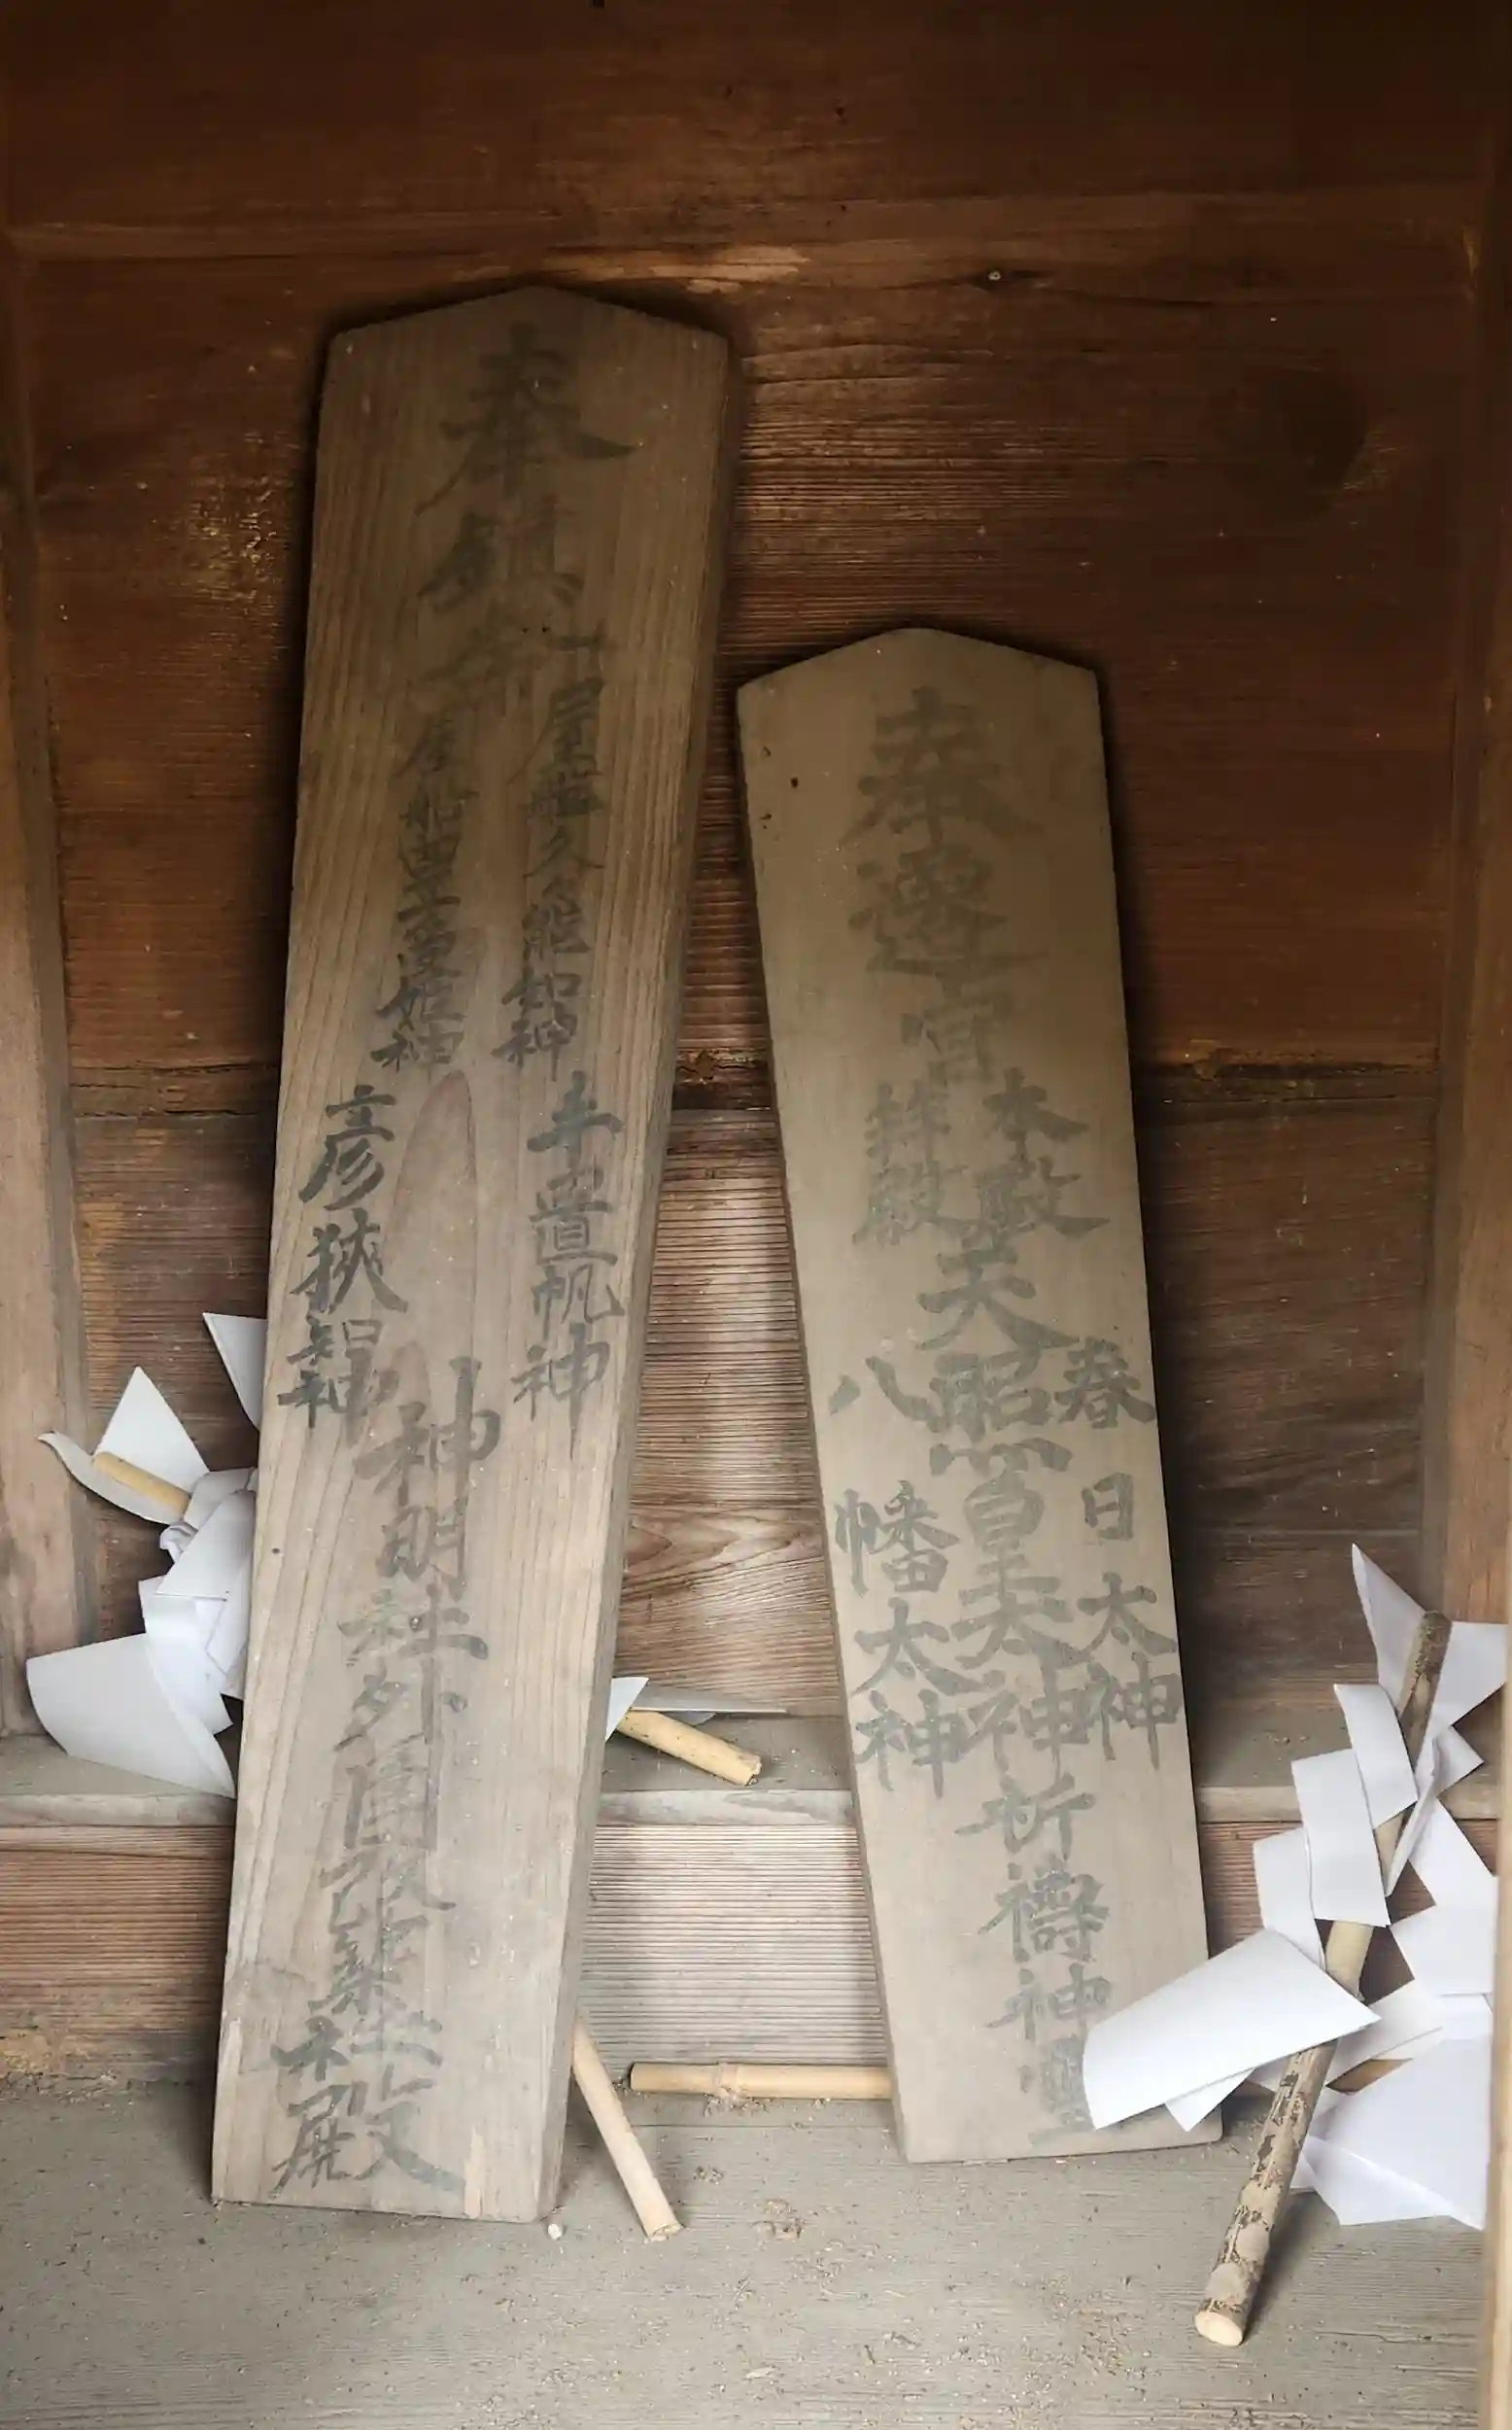 奉遷宮
本殿
拝殿
天照皇太神祈禱神
春日太神
八幡太神
奉鎮
屋船久々能知神
屋船豊姫神
手置帆神
彦狹智神
神明社外圍改築社殿